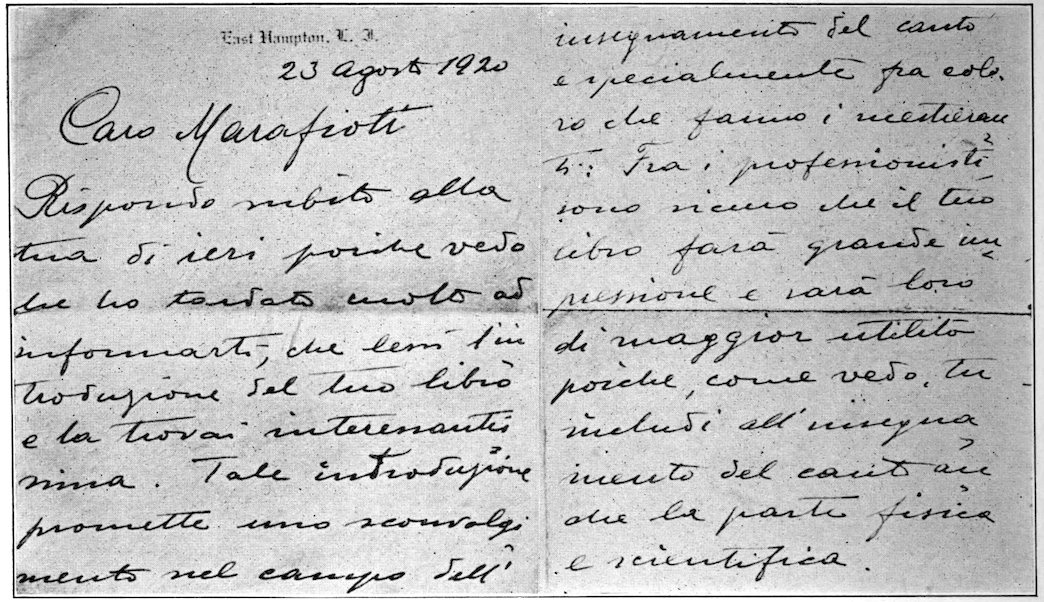 East Hampton, L. I.
23 Agosto 1920
Caro Marafioti
Rispondo subito alla
tua di ieri poiche vedo
che ho tardato molto ad
informarti, che lessi l'in
troduzione del tuo libro
e la trovai interessantis
sima. Tale introduzione
promette uno sconvolgi
mento nel campo dell'
insegnamento del canto
e specialmente fra colo-
ro che fanno i mestieran
ti: Fra i professionisti
sono sicuro che il tuo
libro farà grande im
pressione e sarà loro
di maggior utilità
poiche, come vedo, tu
includi all'insegna
mento del canto an
che la parte fisica
e scientifica.